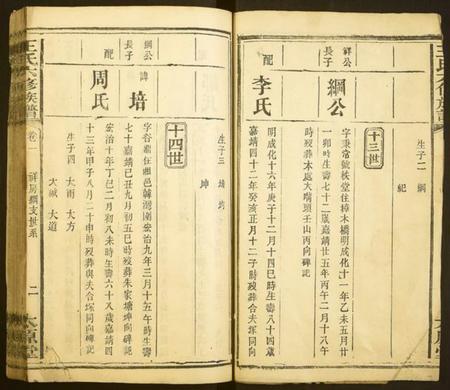 王氏六修族譜
生子二 綱
紀
十三世
祥公
長子
綱公
配
李氏
字秉常號枝堂住樟木橋明成化十一年乙未五月廿
一卯時生壽七十二歲嘉靖廿五年丙午二月十八午
時歿葬本處大嘴頭壬山丙向碑記
明成化十六年庚子十二月十四巳時生壽八十四歲
嘉靖四十二年癸亥正月十二子時歿葬合夫塚同向
太原堂
生子三 培
坤
十四世
綱公
長子
諱
培
配
周氏
弘治九年三月十五午時生壽
七十歲嘉靖
五巳時歿葬朱家塘坤向碑記
弘治十年丁巳二月初八未時生壽六十八歲嘉靖四
十三年甲子八月二十申時歿葬與夫合塚同向碑記
生子四 大雨 大方
大誠 大道
王氏六修族譜
卷二
祥房綱支世系
二
太原堂